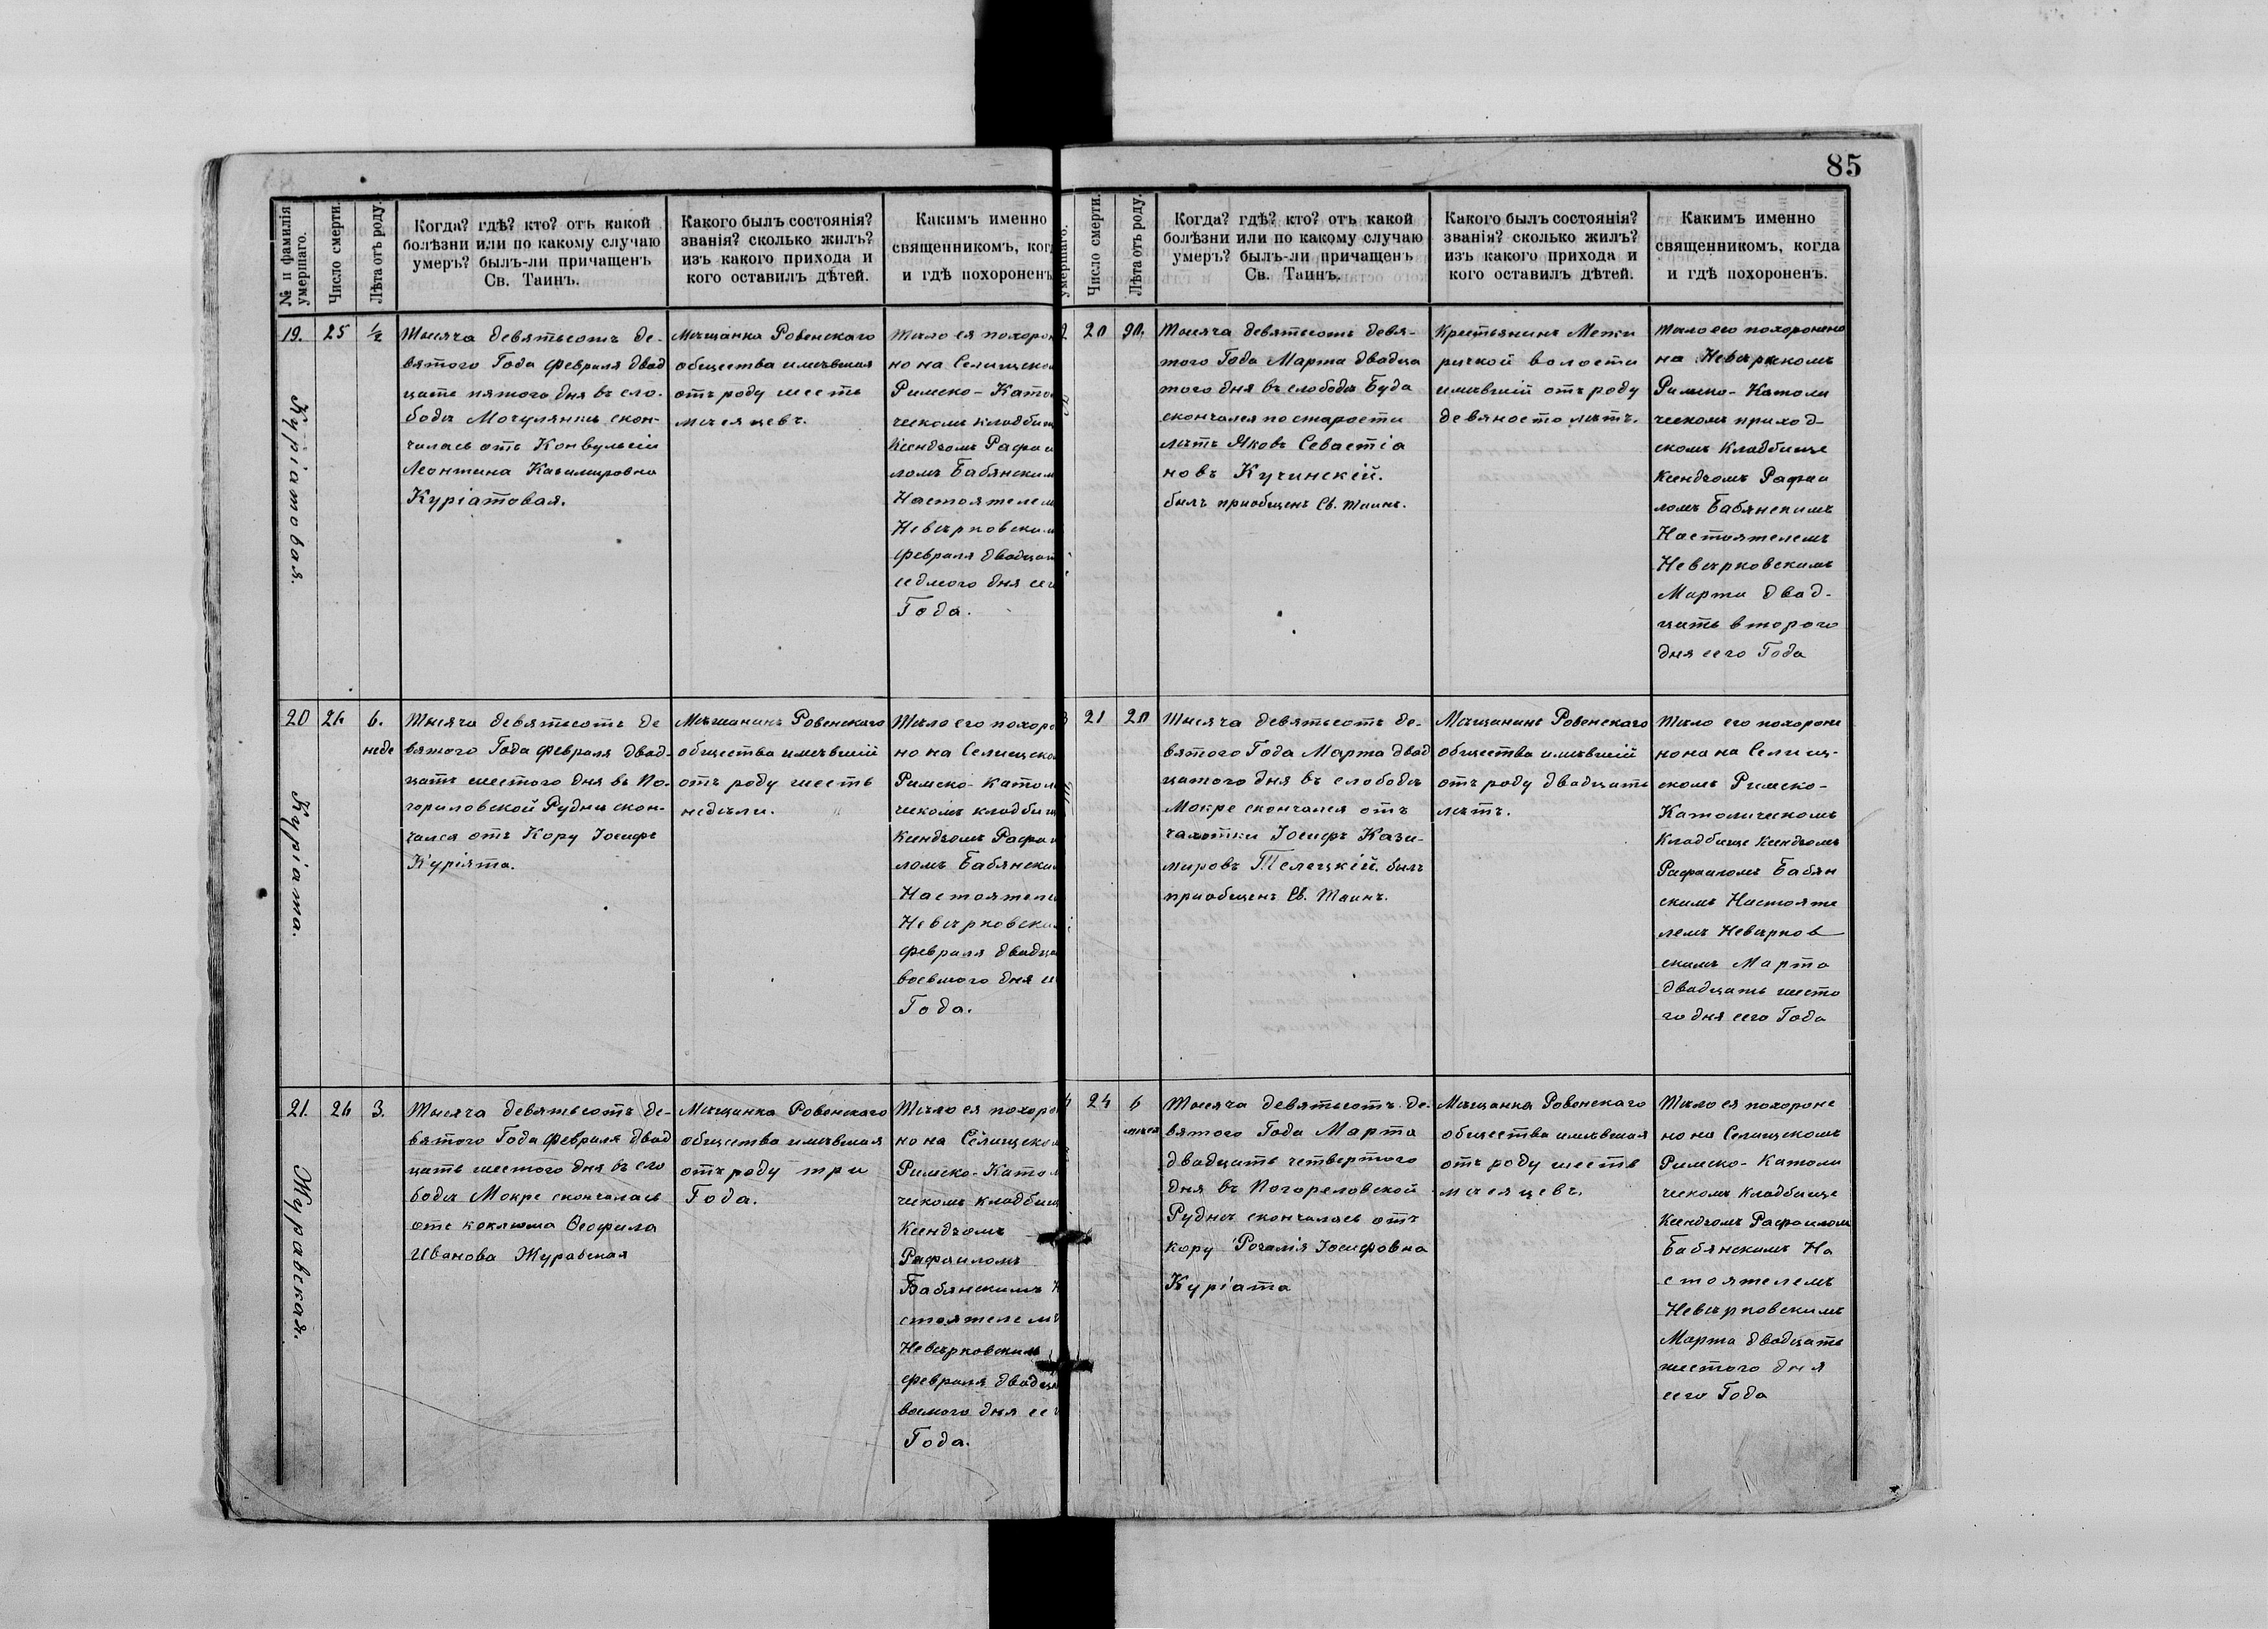 85
№ и фамилія умершаго.
Число смерти.
Лѣта отъ роду.
Когда? гдѣ? кто? отъ какой
болѣзни или по какому случаю
умеръ? былъ-ли причащенъ
Св. Таинъ.
Какого былъ состоянія?
званія? сколько жилъ?
изъ какого прихода и
кого оставилъ дѣтей.
Какимъ именно
священникомъ, когд
и гдѣ похороненъ
19.
Куріатовая.
25
½
Тысяча девятьсотъ де-
вятого Года февраля двад
цать пятого дня въ сло-
бодѣ Мочулянкѣ скон-
чалась отъ Конвульсіи
Леонтина Казимировна
Куріатовая.
Мѣщанка Ровенскаго
общества имѣвшая
отъ роду шесть
мѣсяцевъ.
Тѣло ея похорон
но на Селищском
Римско-Като
ческом кладбищ
Ксендзомъ Рафаи
ломъ Бабянским
Настоятелем
Невѣрковским
февраля двадцат
седмого дня сег
Года.
20
Куріата.
26
6.
неде
Тысяча девятьсотъ де
вятого Года февраля двад-
цать шестого дня въ По-
гориловской Руднѣ скон-
чался отъ Кору Іосифъ
Куріята.
Мѣщанинъ Ровенскаго
общества имѣвшій
отъ роду шесть
недѣли.
Тѣло его похоро
но на Селищско
Римско-Катол
ческомъ кладбищ
Ксендзомъ Рафаи
ломъ Бабянски
Настояте
Невѣрковски
февраля двадца
восьмого дня с
Года.
21.
Журавская.
26
3.
Тысяча девятьсотъ де-
вятого Года февраля двад
цать шестого дня въ сло
бодѣ Мокре скончалась
отъ коклюша Ѳеофила
Иванова Журавская
Мѣщанка Ровенскаго
общества имѣвшая
отъ роду три
Года.
Тѣло ея похоро
но на Селищском
Римско-Катол
ческомъ кладбищ
Ксендзомъ
Рафаиломъ
Бабянскимъ Н
стоятелемъ
Невѣрковским
февраля двадца
восмого дня сег
Года.
умершаго.
Число смерти.
Лѣта отъ роду.
Когда? гдѣ? кто? отъ какой
болѣзни или по какому случаю
умеръ? былъ-ли причащенъ
Св. Таинъ.
Какого былъ состоянія?
званія? сколько жилъ?
изъ какого прихода и
кого оставилъ дѣтей.
Какимъ именно
священникомъ, когда
и гдѣ похороненъ.
20
90.
Тысяча девятьсотъ девя-
того Года Марта двадца
того дня въ слободѣ Буда
скончался по старости
лѣтъ Яковъ Севастіа
новъ Кучинскій.
былъ приобщенъ Св. Таинъ.
Крестьянинъ Межи
ричкой волости
имѣвшій отъ роду
девяносто лѣтъ.
Тѣло его похоронено
на Невѣркномъ
Римско-Католи
ческомъ приход-
скомъ Кладбище
Ксендзомъ Рафаи
ломъ Бабянскимъ
Настоятелемъ
Невѣрковскимъ
Марта двад-
цать второго
дня сего Года
21
20
Тысяча девятьсотъ де-
вятого Года Марта двад
цатого дня въ слободѣ
Мокре скончался отъ
чахотки Іосифъ Кази-
мировъ Телецкій. былъ
приобщенъ Св. Таинъ.
Мѣщанинъ Ровенскаго
общества имѣвшій
отъ роду двадцать
лѣтъ.
Тѣло его похороне
нона на Селищ-
скомъ Римско-
Католическомъ
Кладбище Ксендзомъ
Рафаиломъ Бабян
скимъ Настояте
лемъ Невѣрков
скимъ Марта
двадцать шесто
го дня сего Года
24
6
мѣсяц
Тысяча девятьсотъ де-
вятого Года Марта
двадцать четвертого
дня въ Погореловской
Руднѣ скончалась отъ
кору Розалія Іосифовна
Куріата
Мѣщанка Ровенскаго
общества имѣвшая
отъ роду шесть
мѣсяцевъ.
Тѣло ея похороне
но на Селищскомъ
Римско-Католи
ческомъ Кладбище
Ксендзомъ Рафаиломъ
Бабянскимъ На
стоятелемъ
Невѣрковскимъ
Марта двадцать
шестого дня
сего Года